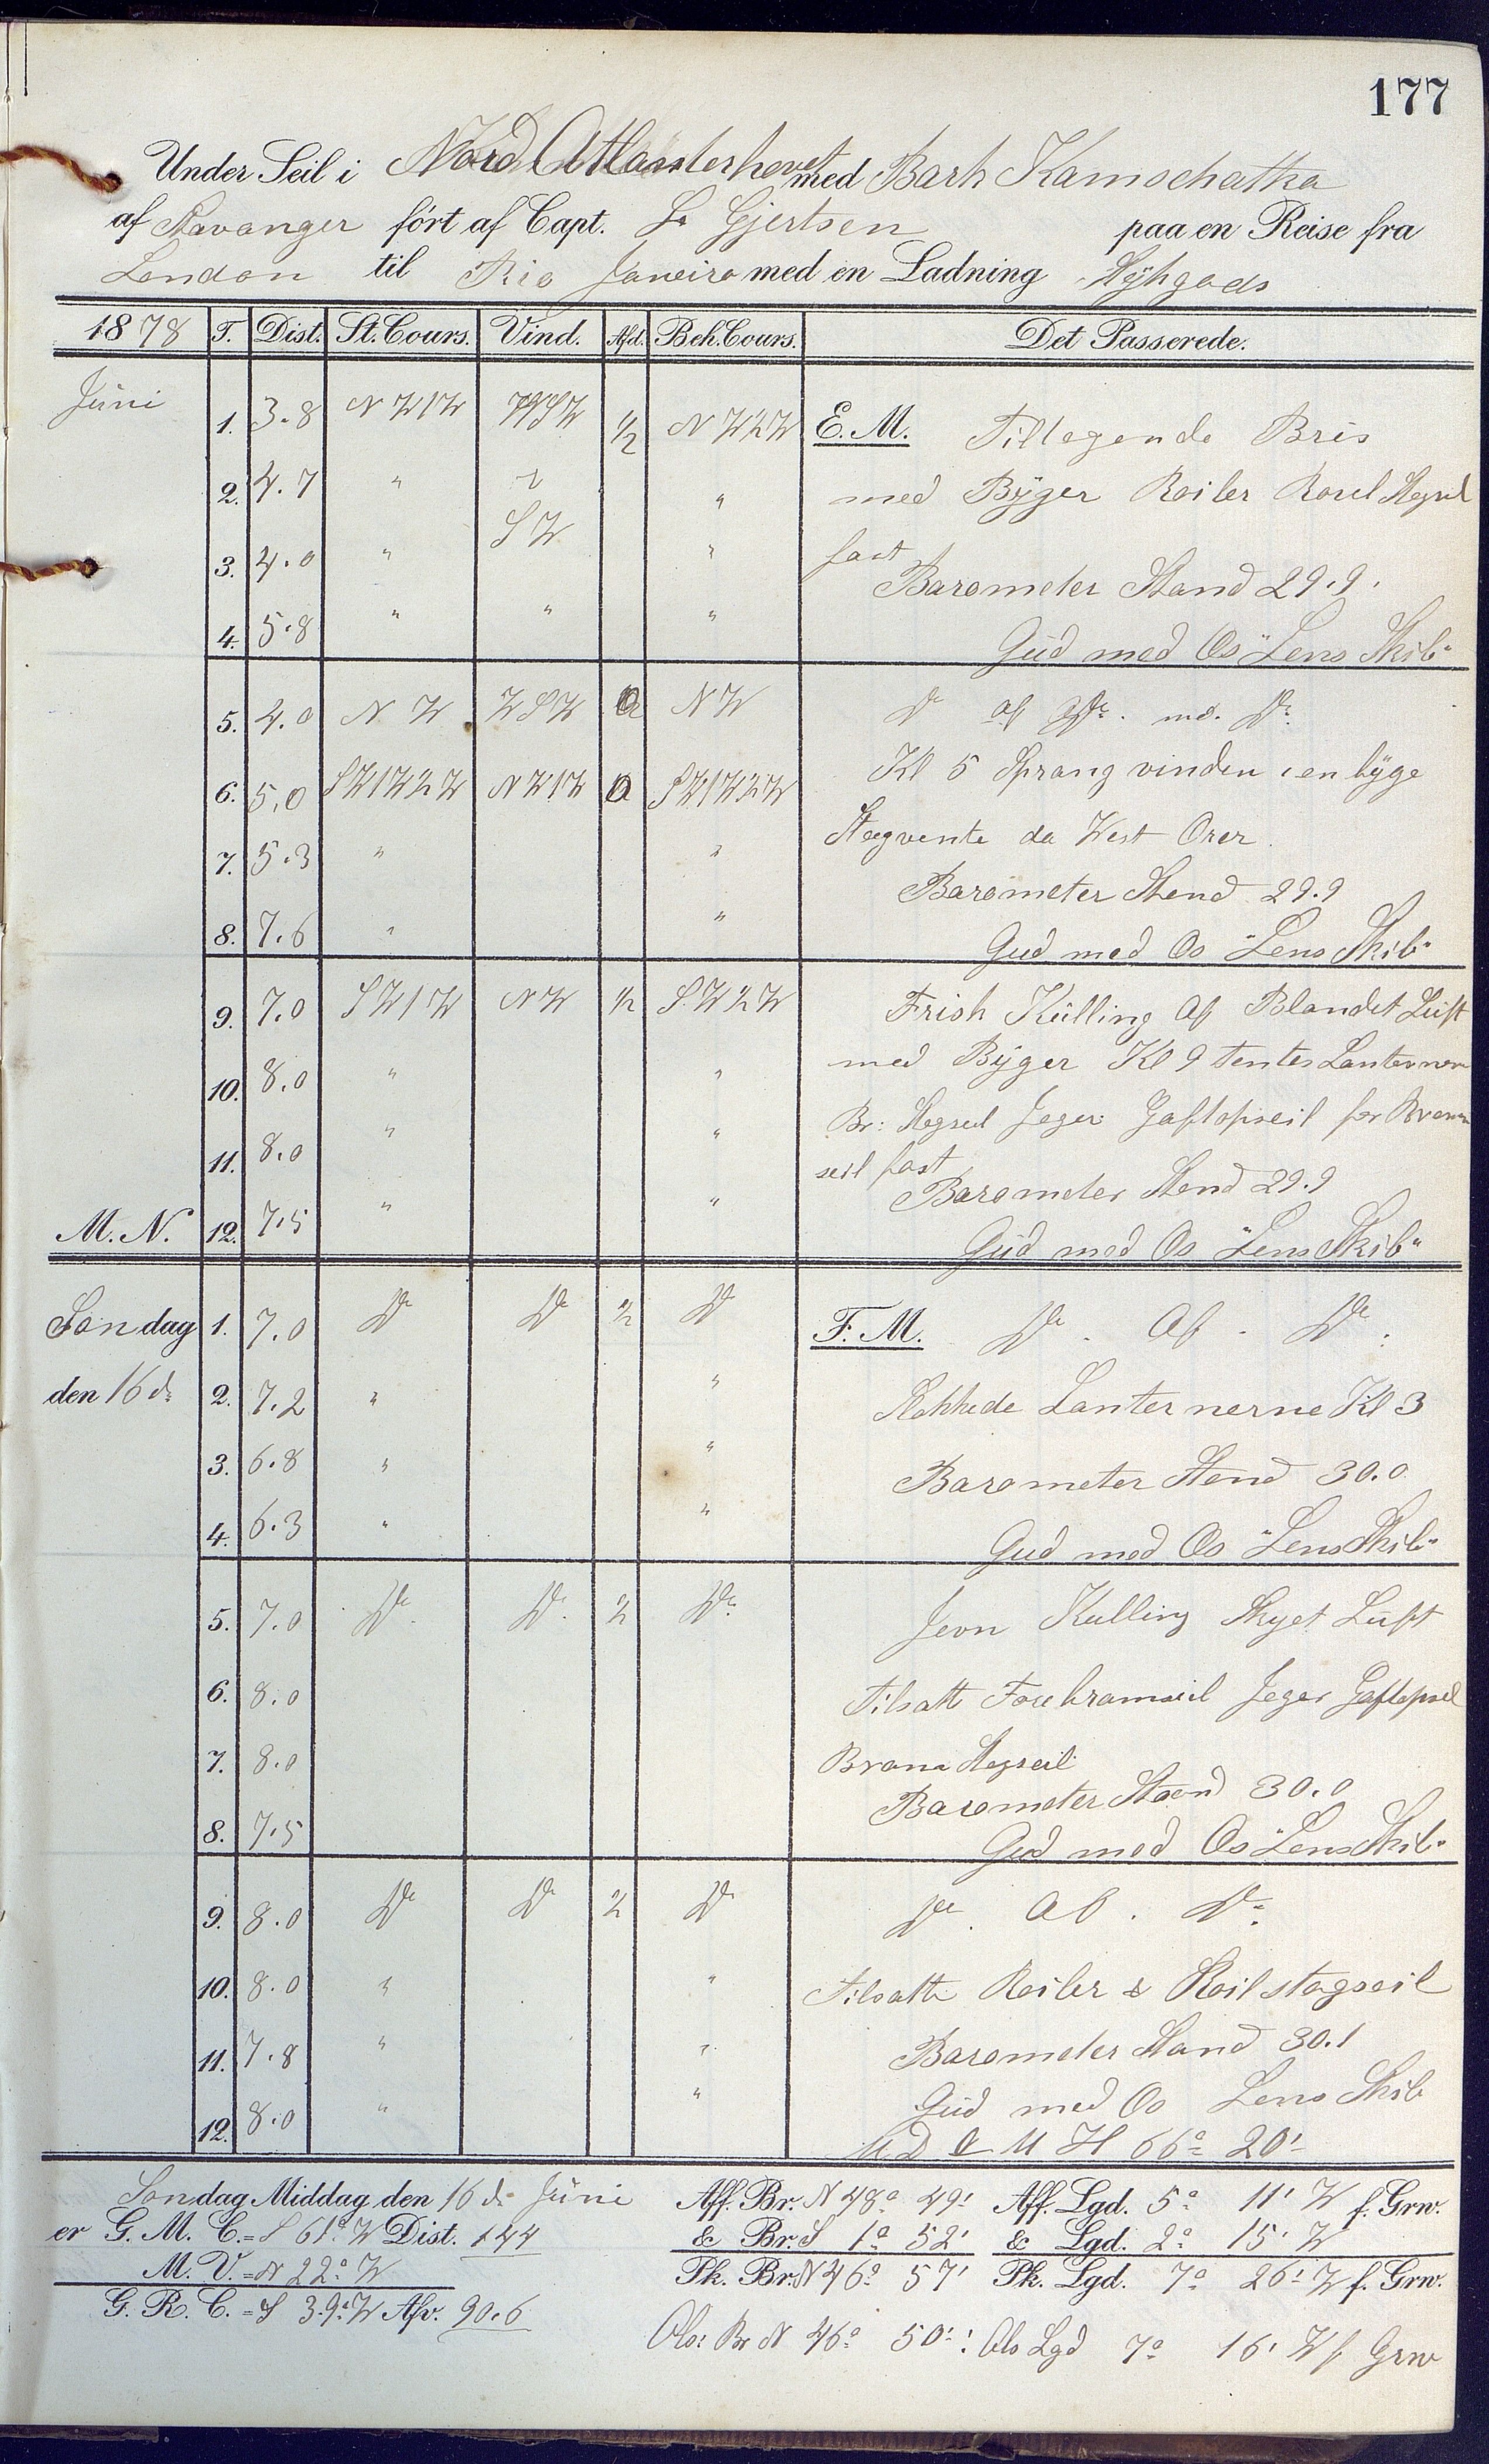 177
Under Seil i Nord Atlanterhavet med Bark Kamschatka
af Stavanger ført af Capt. L. Gjertsen paa en Reise fra
London til Rio Janeiro med en Ladning Stÿkgods
1878 T. Dist. St. Cours. Vind. Afd. Beh. Cours. Det Passerede.
Jüni 1. 3.8 N W 1 W WSW 1/2 N W 2 W E. M. Tiltagende Bris
2. 4.7 " " med Bÿger Roiler
3. 4.0 " S W " fast
Barometer Stand 29.9.
4. 5.8 " " " Güd med Os "Lens Skib"
5. 4.0 N W WSW 0 N W Do af Do. md. Do.
6. 5.0 SW1W2W N W 1 W 0 SW1W2W Kl 5 Sprang vinden i en bÿge
7. 5.3 " " Stagvente da West Over
Barometer Stand 29.9
8. 7.6 " " Gud med Os "Lens Skib"
9. 7.0 S W 1 W N W 1/2 S W 2 W Frisk Külling af Blandet Lüft
10. 8.0 " " med Bÿger Kl 9 tentes Lanternerne
11. 8.0 " " Br: Stagseil Jager Gaftopseil for Bram
seil fast
Barometer Stand 29.9
M. N. 12. 7.5 " " Güd med Os "Lens Skib"
Søndag 1. 7.0 Do Do 1/2 Do F. M. Do. Af. Do.
den 16 d: 2. 7.2 " " Slokkede Lanternerne Kl 3
3. 6.8 " " Barometer Stand 30.0
4. 6.3 " " Gud med Os "Lens Skib"
5. 7.0 Do. Do. 1/2 Do. Jevn Kulling Skyet Lüft
6. 8.0 Tilsatte Forebramseil Jager Gaftopseil
7. 8.0 Bram Stagseil
Barometer Stand 30.0
8. 7.5 Gud med Os "Lens Skib"
9. 8.0 Do Do 1/2 Do Do. Af. Do.
10. 8.0 " " Tilsatte Roiler & Roil stagseil
11. 7.8 " " Barometer Stand 30.1
12. 8.0 " " Güd med Os Lens Skib
M H 66° 20'
Søndag Middag den 16 d: Jüni Aff. Br. N 48° 49' Aff. Lgd. 5° 11' W f. Grw.
er G. M. C. = S 61° W Dist. 144 & Br. S 1° 52' & Lgd. 2° 15' W
M. V. = N 22° W Pk. Br. N 46° 57' Pk. Lgd. 7° 26' W f. Grw.
G. R. C. = S 39° W Afv. 90.6
Obs: Br N 46° 50': Obs Lgd 7° 16' W f Grw